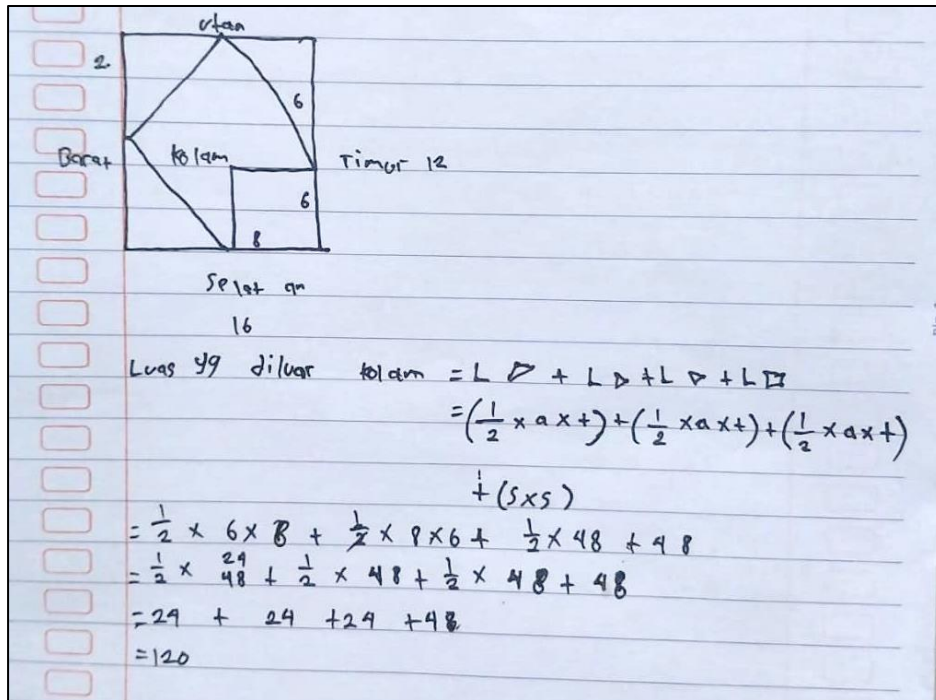 utan
2
6
Barat kolam Timur 12
6
8
Selatan
16
Luas yg diluar kolam = L ▷ + L ▷ + L ▷ + L □
= (1/2 x a x t) + (1/2 x a x t) + (1/2 x a x t)
+ (s x s)
= 1/2 x 6 x 8 + 1/2 x 8 x 6 + 1/2 x 48 + 48
= 1/2 x 48 24 + 1/2 x 48 + 1/2 x 48 + 48
= 24 + 24 + 24 + 48
= 120